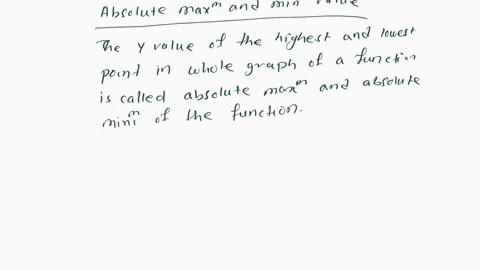 Absolute maxᵐ and min value
The y value of the highest and lowest
point in whole graph of a function
is called absolute maxᵐ and absolute
miniᵐ of the function.